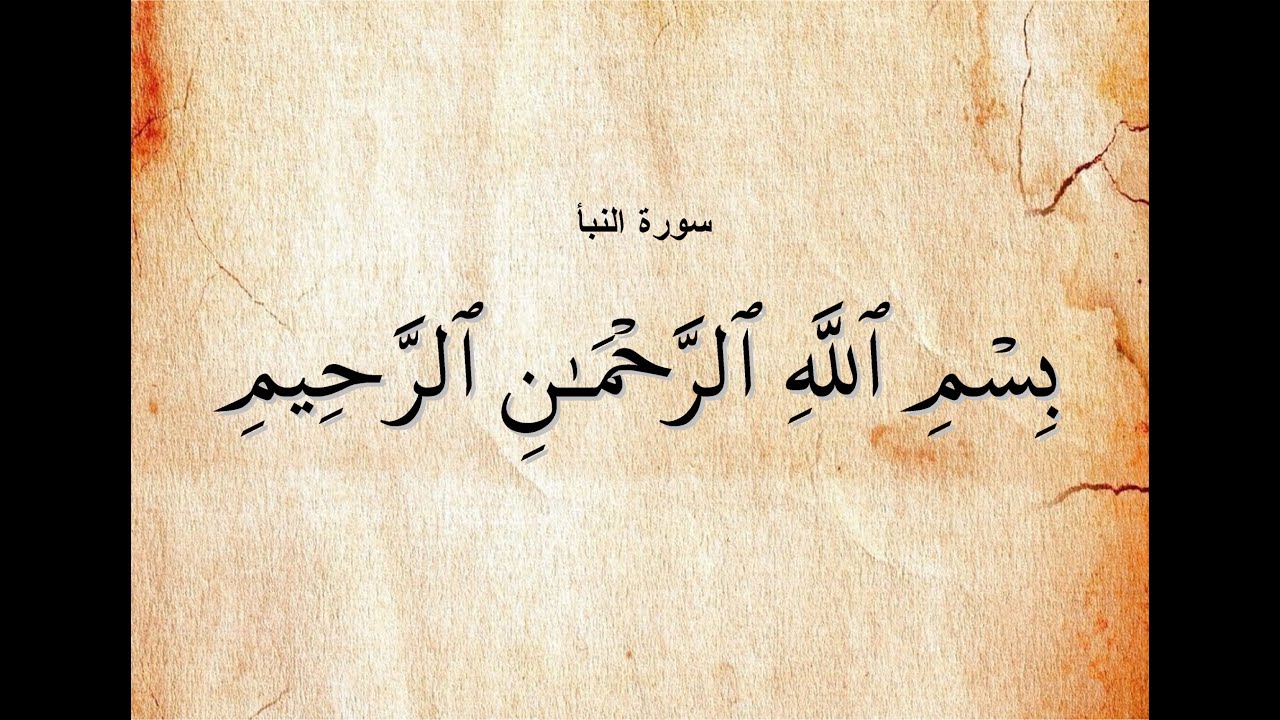 سورة النبأ
بِسْمِ ٱللَّهِ ٱلرَّحْمَـٰنِ ٱلرَّحِيمِ